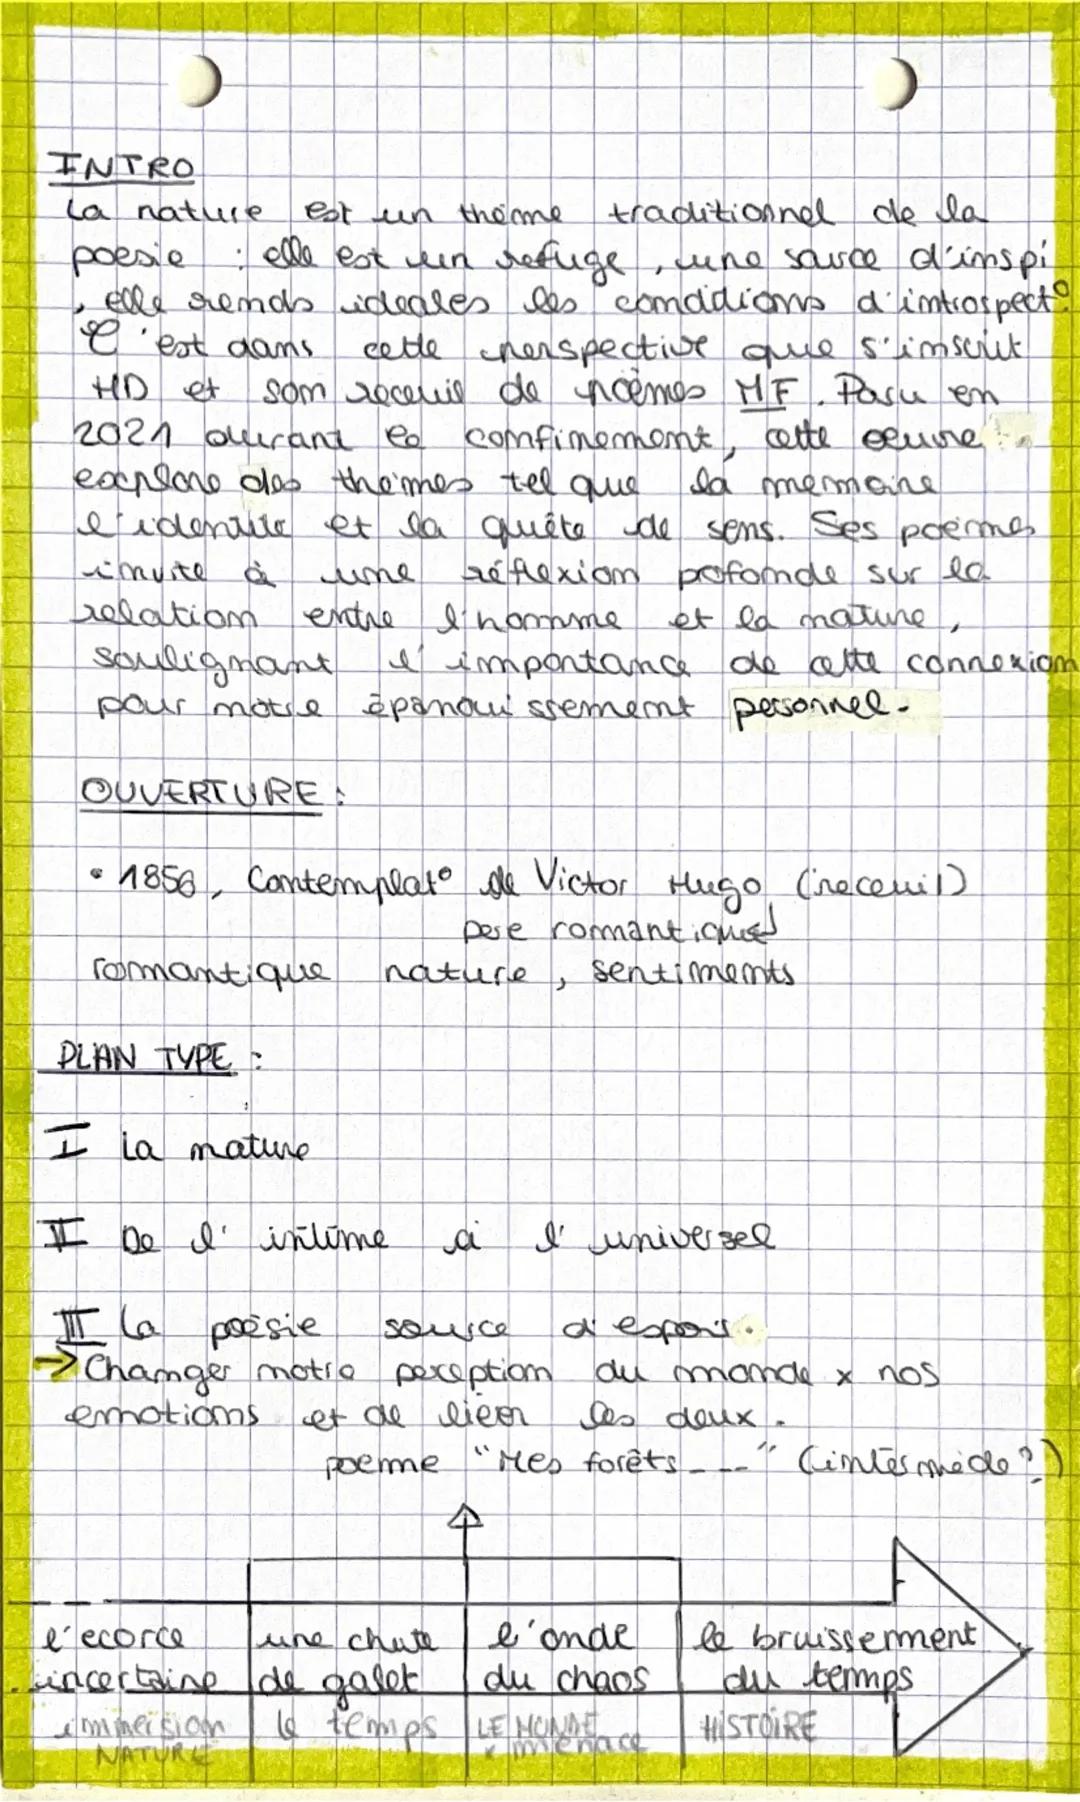 INTRO
La nature est un thème traditionnel de la
poesie : elle est un refuge, une source d'inspi
, elle rends ideales les conditions d'introspect°.
C'est dans cette perspective que s'inscrit
HD et son receuil de poèmes MF. Paru en
2021 durant le confinement, cette oeuvre
explore des thèmes tel que la memoire
l'identité et la quête de sens. Ses poèmes
invite à une réflexion profonde sur la
relation entre l'homme et la nature,
soulignant l'importance de cette connexion
pour notre épanouissement personnel.
OUVERTURE :
• 1856, Contemplat° de Victor Hugo (receuil)
pere romantique
romantique nature, sentiments
PLAN TYPE :
I La nature
II De l'intime à l'universel
III La poésie source d'espoir.
→ Changer notre perception du monde x nos
emotions et de lier les deux.
poeme "Mes forêts---" (intermède?)
l'ecorce incertaine
une chute de galet
l'onde du chaos
le bruissement du temps
immersion NATURE
le temps
LE MONDE x menace
HISTOIRE